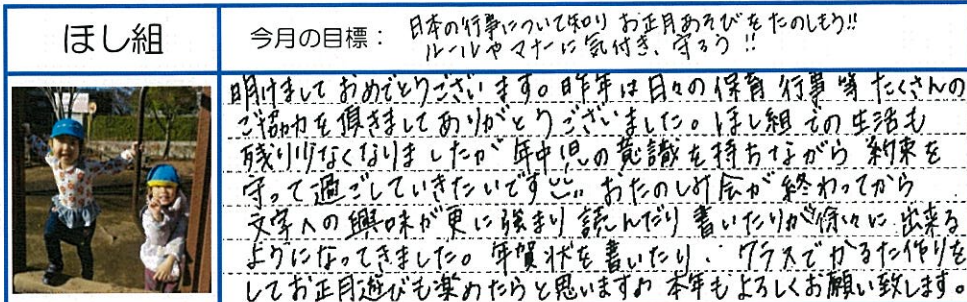 ほし組
今月の目標：
日本の行事について知り お正月あそびをたのしもう!!
ルールやマナーに気付き、守ろう!!
明けましておめでとうございます。昨年は日々の保育 行事等 たくさんの
ご協力を頂きましてありがとうございました。ほし組での生活も
残り少なくなりましたが 年中児の意識を持ちながら 約束を
守って過ごしていきたいです おたのしみ会が終わってから
文字への興味が更に強まり 読んだり 書いたりが徐々に出来る
ようになってきました。年賀状を書いたり、クラスでかるた作りを
してお正月遊びも楽めたらと思います♪ 本年もよろしくお願い致します。